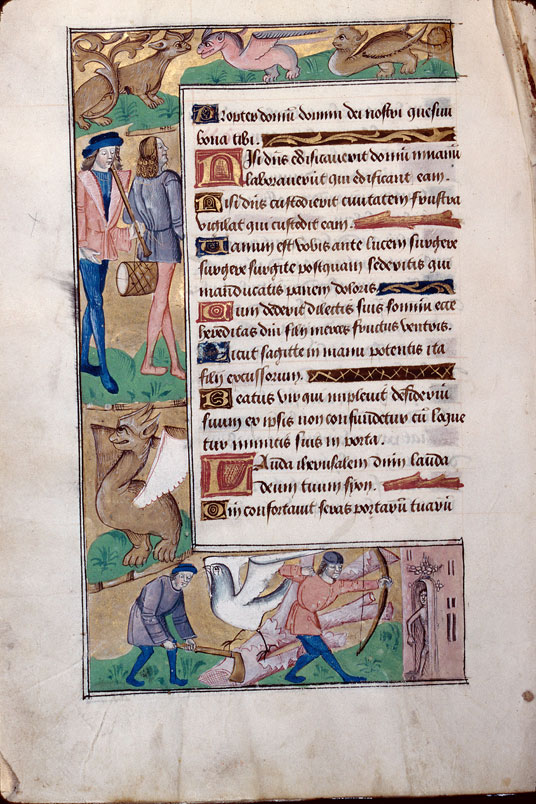 Propter domū domini dei nostri quesiui
bona tibi.
Nisi dūs edificauerit domū in uanū
laborauerūt qui edificant eam.
Nisi dūs custodierit ciuitatem frustra
uigilat qui custodit eam.
Uanum est uobis ante lucem surgere
surgere surgite postquam sederitis qui
manducatis panem doloris.
Cum dederit dilectis suis somnū ecce
hereditas dni filii merces fructus uentris.
Sicut sagitte in manu potentis ita
filii excussorum.
Beatus uir qui impleuit desideriū
suum ex ipsis non confundetur cū loque
tur inimicis suis in porta.
Lauda iherusalem dnm lauda
deum tuum syon.
Qm confortauit seras portarū tuarū